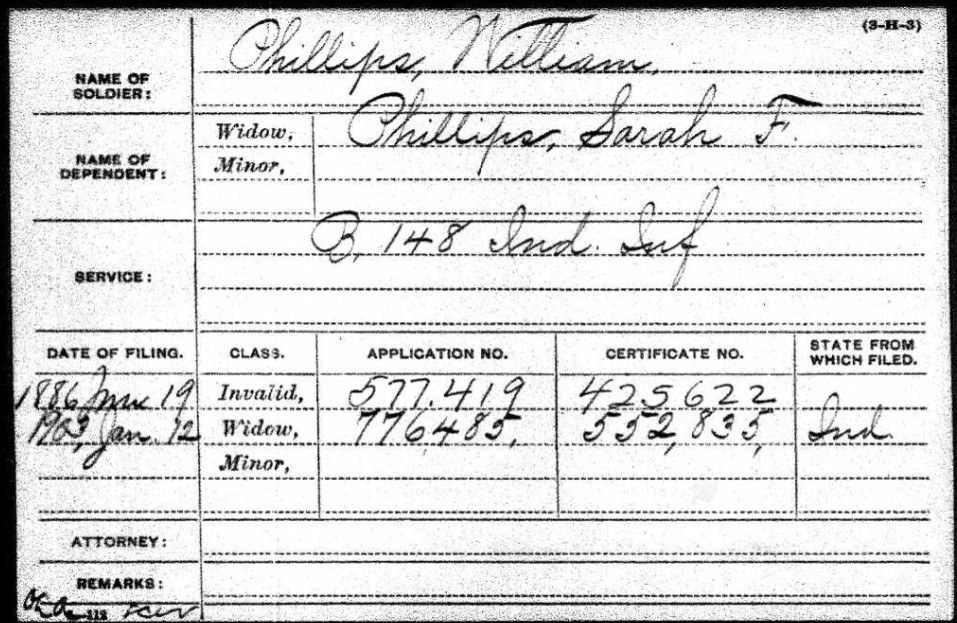 (3-H-3)
NAME OF SOLDIER: Phillips, William,
NAME OF DEPENDENT: Widow, Phillips, Sarah F.
Minor,
SERVICE: B, 148 Ind. Inf
DATE OF FILING. CLASS. APPLICATION NO. CERTIFICATE NO. STATE FROM WHICH FILED.
1886 19 Invalid, 577.419 425622
1903, Jan. 12 Widow, 776485, 552,835, Ind.
Minor,
ATTORNEY:
REMARKS:
112